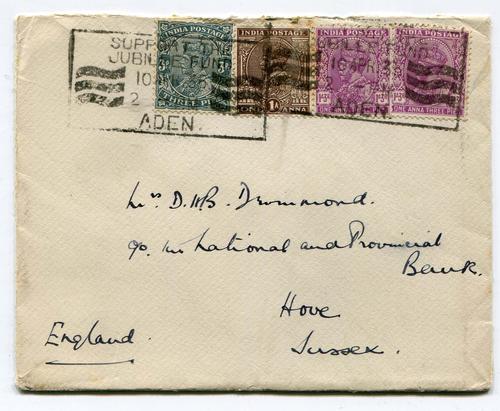 INDIA POSTAGE INDIA POSTAGE INDIA POSTAGE INDIA POSTAGE
SUPPORT THE
JUBILEE FUND
10
2
ADEN.
JUBILEE FUND
10 APR 35
2
ADEN.
THREE PIES
1A ONE ANNA
ONE ANNA THREE PIES
ONE ANNA THREE PIES
Mrs D.H.B. Drummond.
c/o The National and Provincial
Bank.
Hove
England. Sussex.